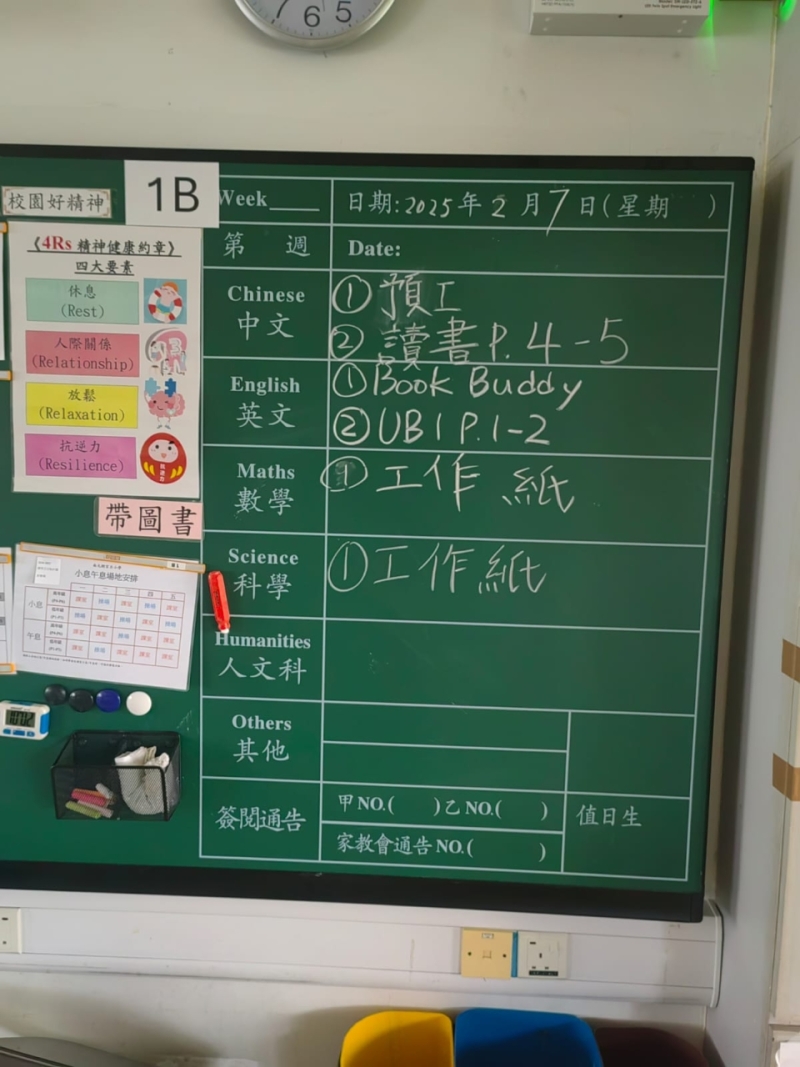 7 6 5
校園好精神
1B
《4Rs 精神健康約章》
四大要素
休息
(Rest)
人際關係
(Relationship)
放鬆
(Relaxation)
抗逆力
(Resilience)
帶圖書
小息午息場地安排
一 二 三 四 五
小息
午息
Week____
日期:2025年2月7日(星期 )
第 週
Date:
Chinese
中文
① 預工
② 讀書P.4-5
English
英文
① Book Buddy
② UB1 P.1-2
Maths
數學
① 工作紙
Science
科學
① 工作紙
Humanities
人文科
Others
其他
簽閱通告
甲NO.( )乙NO.( )
家教會通告NO.( )
值日生